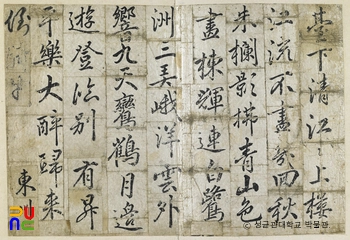 臺下清江〻上樓
江流不盡幾回秋
朱欄影拂青山色
畫棟輝連白鷺
洲二美峨洋雲外
響九天鸞鶴月邊
遊登臨別有昇
平樂大醉歸來
倒
東
성균관대학교 박물관